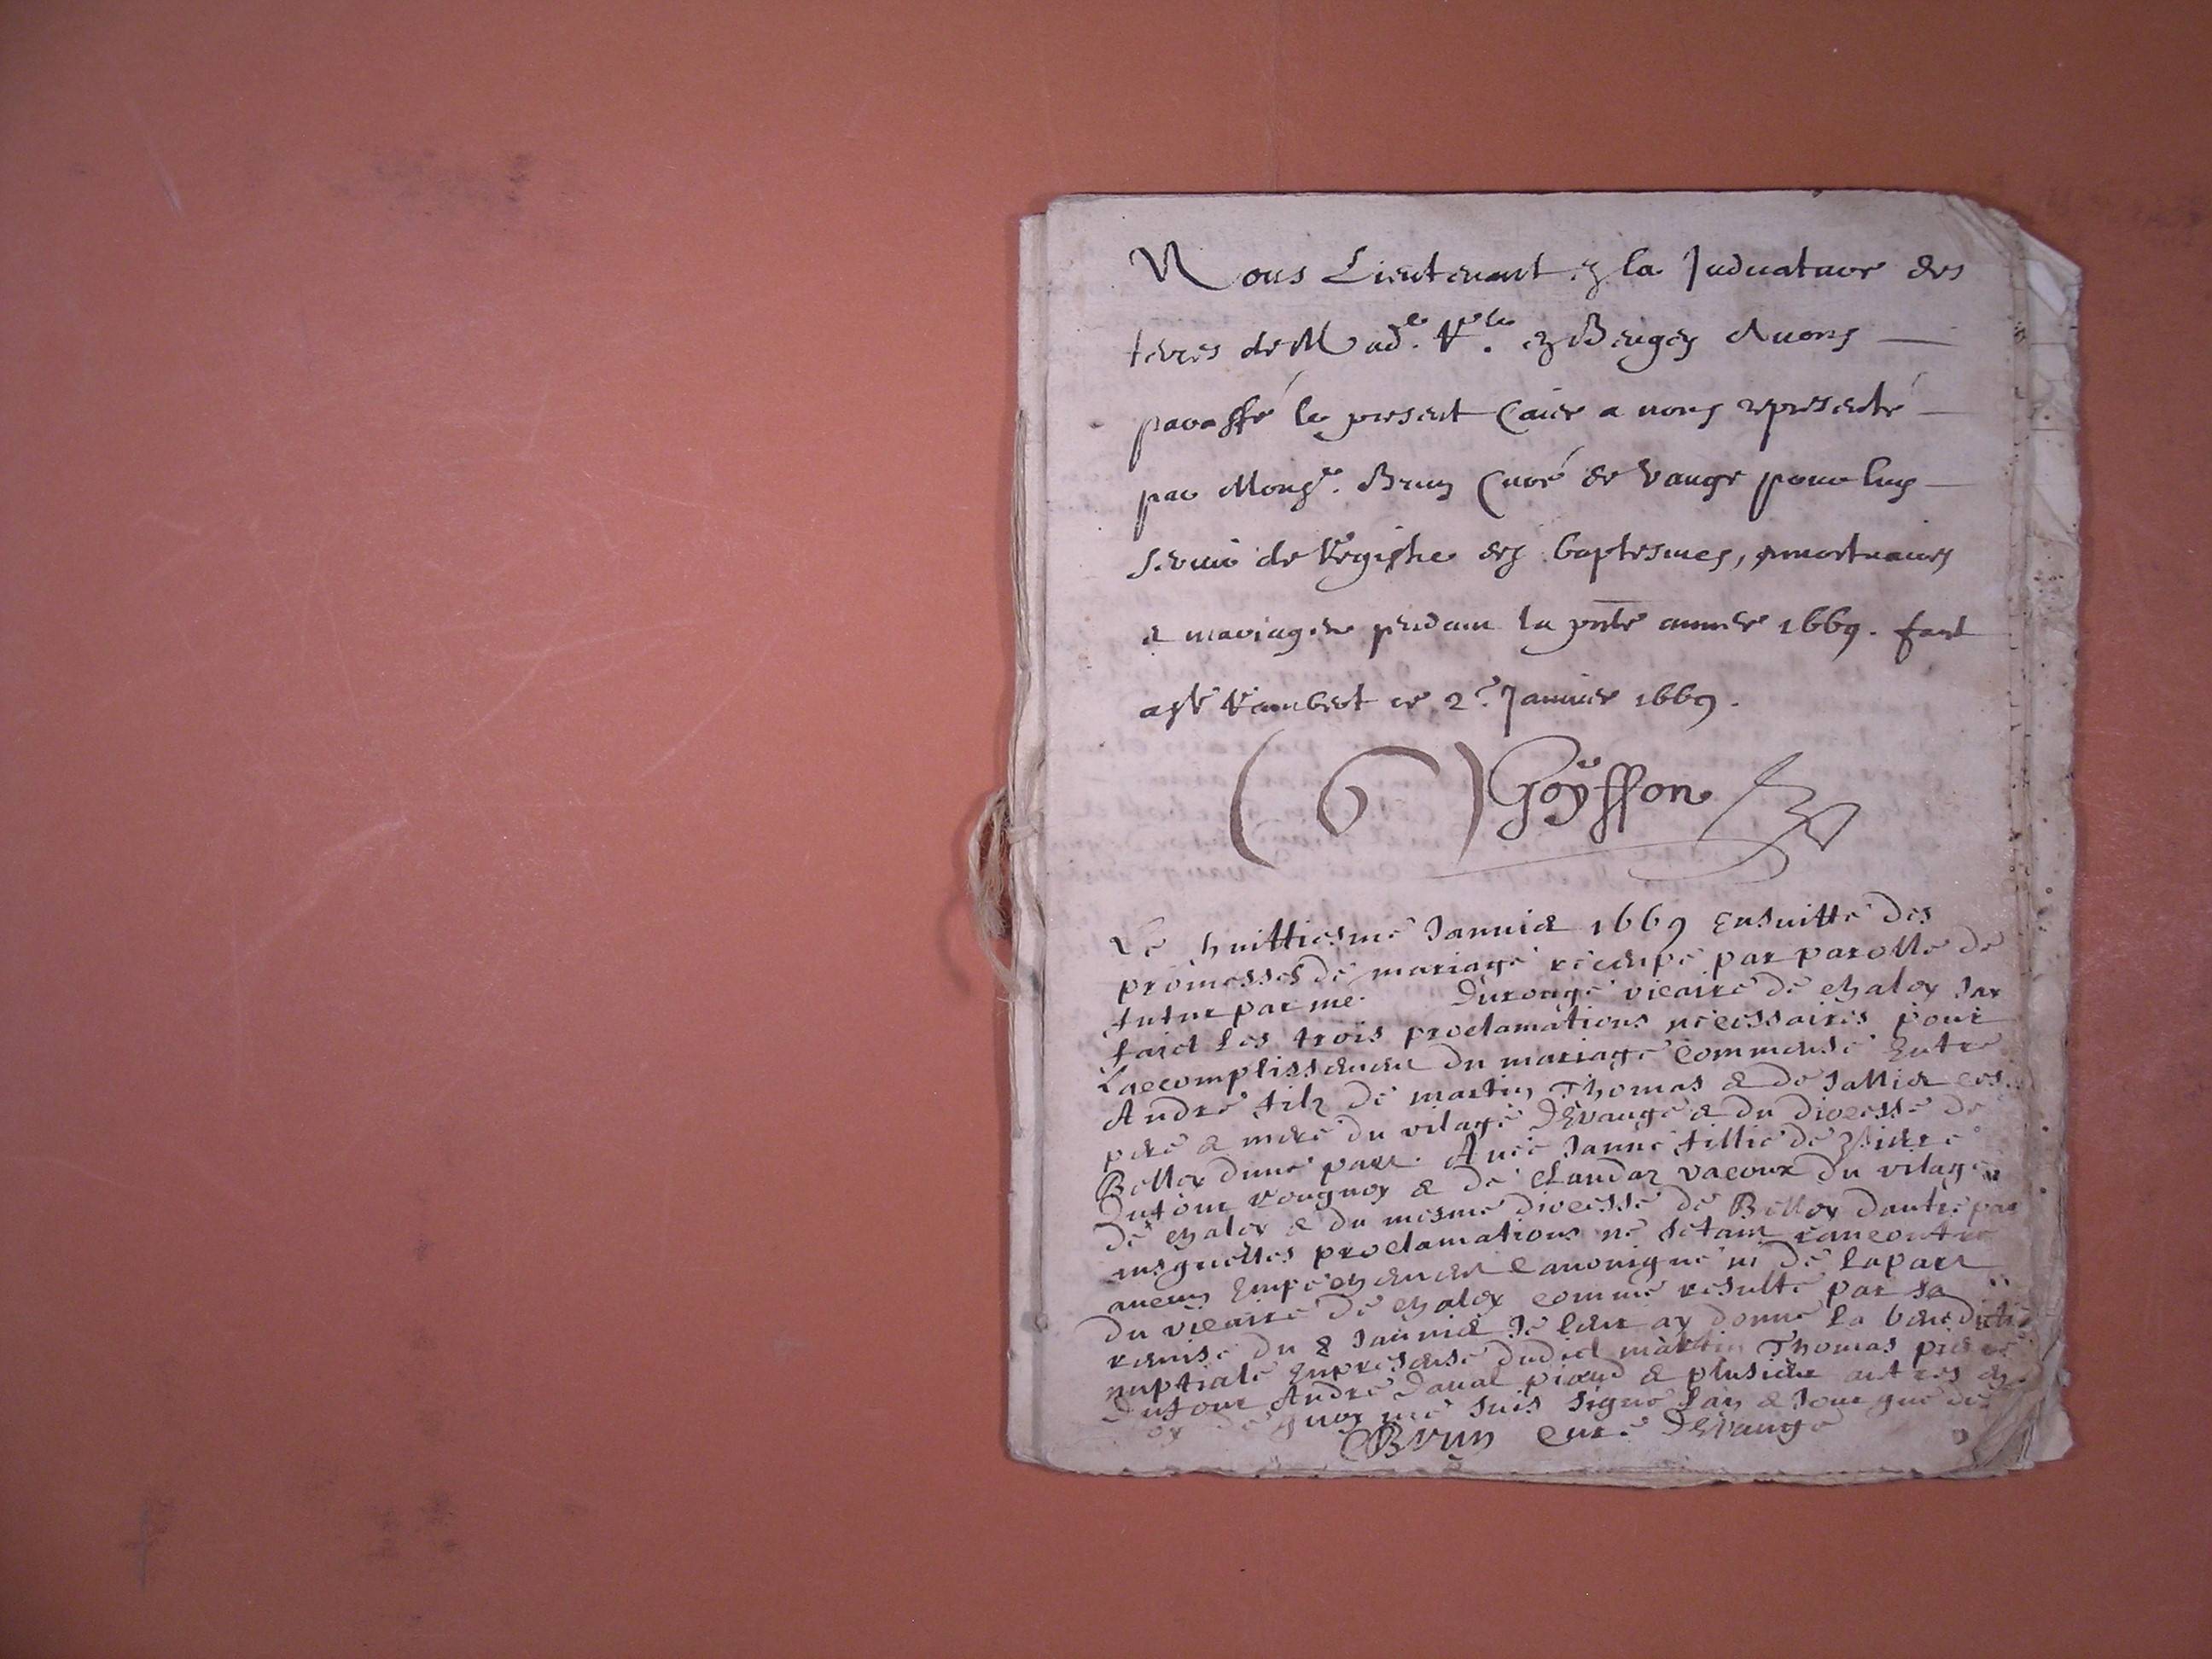 Nous Lieutenant en la Judicature des
terres de Mad.e R.le en Beugey Avons
paraffé le present Caier a nous represanté
par Mons.r Brun Curé de Vaugr pour luy
servir de Registre des baptesmes, mortuaires
& mariages pendant la pnte annee 1669. fait
a St Rambert ce 2.e Janvier 1669.
(6) Goÿffon
Le huittiesme Janvier 1669 ensuitte des
promesses de mariage par parolle de
futur par me. Durouge vicaire de chaley Jay
faict les trois proclamations necessaires pour
Laccomplissement du mariage commensé Entre
André filz de martin Thomas & de
pere & mere du vilage DEvauge & du diocesse de
Belley dune part. Avec Janne fillie de Pierre
Dufour & de Claudaz du vilage
de chaley & du mesme diocesse de Belley dautre par
ausquelles proclamations ne setant rancontre
aucun Empechement canonique ni de la part
du vicaire de chaley comme resulte par sa
remise du 8 Janvier Je leur ay donne la benedicti
nuptiale En presense dudict martin Thomas pierre
Dufour André & plusieur autres en
foy de quoy me suis signe Lan & Jour que des
Brun cure DEvauge